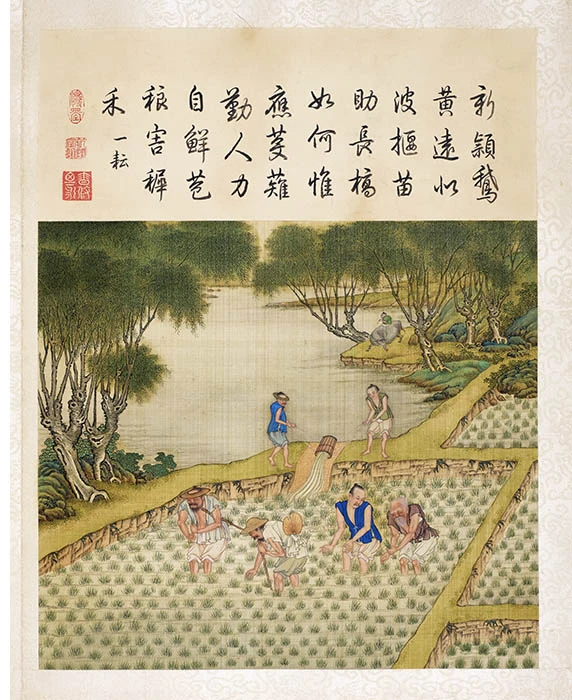 新穎鵞
黃遠似
波揠苗
助長槁
如何惟
應芟薙
勤人力
自鮮苞
稂害穉
禾
一耘